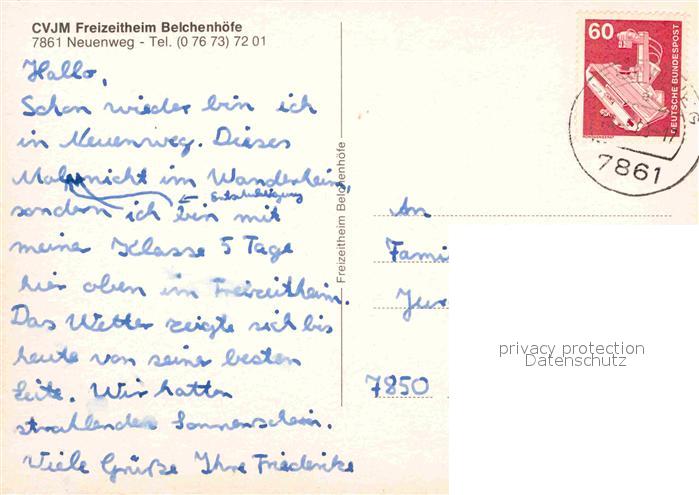 CVJM Freizeitheim Belchenhöfe
7861 Neuenweg - Tel. (0 76 73) 72 01
Hallo,
Schon wieder bin ich
in Neuenweg. Dieses
Mal nicht im Wanderheim,
← Entschuldigung
sondern ich bin mit
meiner Klasse 5 Tage
hier oben im Freizeitheim.
Das Wetter zeigte sich bis
heute von seiner besten
Seite. Wir hatten
strahlenden Sonnenschein.
Viele Grüße Ihre Friederike
Freizeitheim Belchenhöfe
60
DEUTSCHE BUNDESPOST
7861
An
Famil
7850
privacy protection
Datenschutz